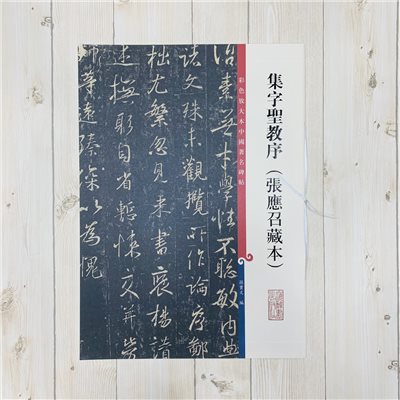 集字聖教序（張應召藏本）
彩色放大本中國著名碑帖
孫寶文 編
治素無才學性不聰敏內典
諸文殊未觀攬所作論序鄙
拙尤繁忽見來書褒揚讚
述撫躬自省慚悚交并勞
師等遠臻深以為愧